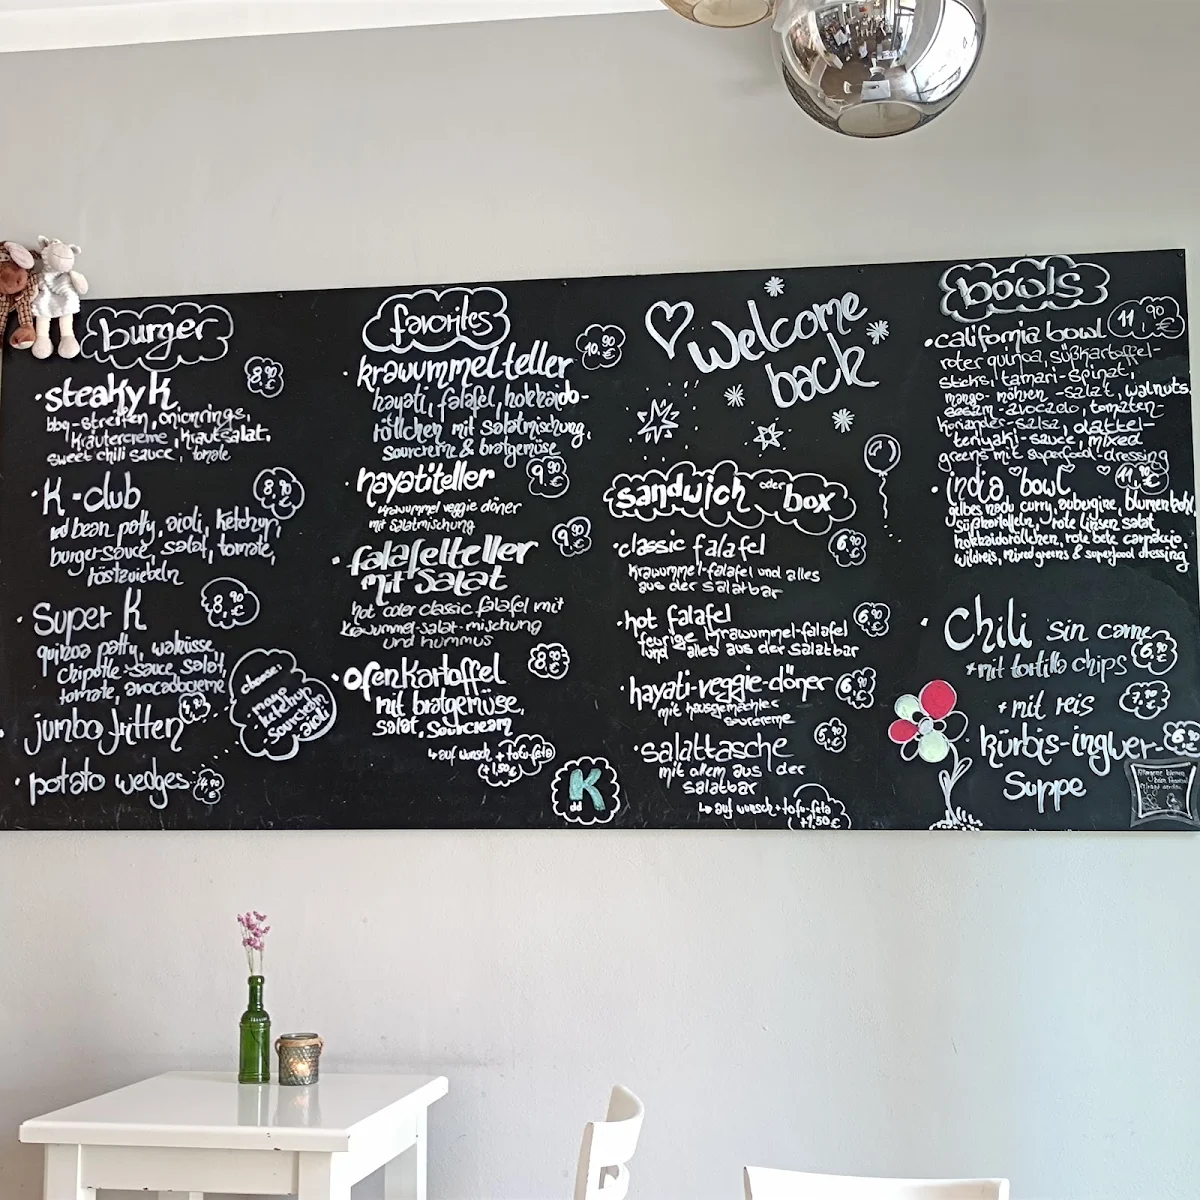 burger
steaky K 8,90 €
bbq-streifen, onionrings,
kräutercreme, krautsalat,
sweet chili sauce, tomate
K-club 8,90 €
red bean patty, aioli, ketchup,
burgersauce, salat, tomate,
röstzwiebeln
Super K 8,90 €
quinoa patty, walnüsse,
chipotle-sauce, salat,
tomate, avocadocreme
jumbo fritten
choose:
mayo
ketchup
sourcream
aioli
potato wedges
favorites
krawummel teller 10,90 €
hayati, falafel, hokkaido-
röllchen mit salatmischung,
sourcreme & bratgemüse
hayatiteller 9,90 €
krawummel veggie döner
mit salatmischung
falafelteller 9,90 €
mit salat
hot oder classic falafel mit
krawummel-salat-mischung
und hummus
ofenkartoffel 8,90 €
mit bratgemüse,
salat, sourcream
↳ auf wunsch + tofu-feta
+1,50€
K
dd
Welcome
back
sandwich oder box
classic falafel 6,90 €
krawummel-falafel und alles
aus der salatbar
hot falafel 6,90 €
feurige krawummel-falafel
und alles aus der salatbar
hayati-veggie-döner 6,90 €
mit hausgemachter
sourcreme
salattasche 5,90 €
mit allem aus der
salatbar
↳ auf wunsch + tofu-feta
+1,50€
bowls
california bowl 11,90 €
roter quinoa, süßkartoffel-
sticks, tamari-spinat,
mango-möhren-salat, walnuts,
sesam-avocado, tomaten-
koriander-salsa, dattel-
teriyaki-sauce, mixed
greens mit superfood-dressing
india bowl 11,90 €
gelbes nadu curry, aubergine, blumenkohl,
süßkartoffeln, rote linsen salat,
hokkaidoröllchen, rote bete carpaccio,
wildreis, mixed greens & superfood dressing
Chili sin carne
+ mit tortilla chips 6,90 €
+ mit reis 7,90 €
kürbis-ingwer-
Suppe